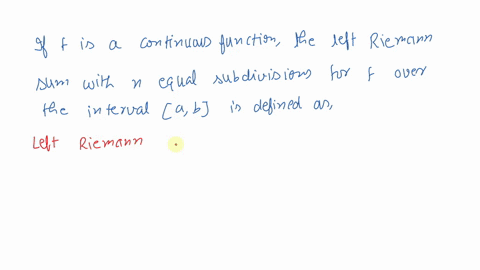 If f is a continuous function, the left Riemann
sum with n equal subdivisions for f over
the interval [a,b] is defined as,
Left Riemann